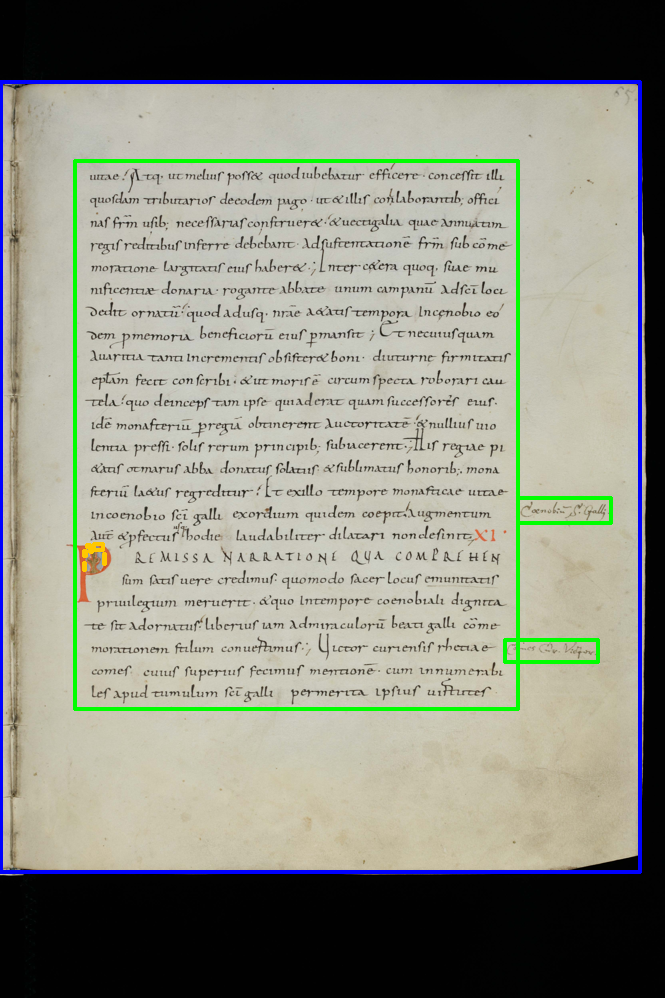 uitae. Atq; ut melius posset quod iubebatur efficere. concessit illi
quosdam tributarios de eodem pago. ut & illis conlaborantib; offici
nas frm usib; necessarias construer&. & uectigalia quae annuatim
regis reditibus inferre debebant. Ad sustentationē frm sub cōme
moratione largitatis eius haber&; Inter c&era quoq. suae mu
nificentiae donaria. rogante abbate unum campanū Ad scī loci
dedit ornatū. quod adusq. nrae a&atis tempora In cenobio eo
dem p memoria beneficiorū eius p mansit; Et necuiusquam
Auaritia tanti incrementis obsister& boni. diuturne firmitatis
eplam fecit conscribi. & ut moris ē circumspecta roborari cau
tela. quo deinceps tam ipse qui aderat quam successores eius.
idē monasteriū p regiā obtinerent Auctoritatē. & nullius uio
lentia pressi. solis rerum principib; subiacerent; His regiae pi
&atis otmarus abba donatus solatiis. & sublimatus honorib;. mona
sterium la&us regreditur. Et ex illo tempore monasticae uitae
in coenobio scī galli exordium quidem coepit. Augmentum
Aut & pfectus usq; hodie laudabiliter dilatari non desinit; XI.
PREMISSA NARRATIONE QUA COMPREHEN
sum satis uere credimus. quomodo sacer locus emunitatis
priuilegium meruerit. & quo In tempore coenobiali dignita
te sit adornatus. liberius iam Ad miraculorū beati galli cōme
morationem stilum conuertimus; Uictor curiensis rhetiae
comes cuius superius fecimus mentionē. cum innumerabi
les apud tumulum scī galli per merita ipsius uirtutes.
Coenobiū S. Galli
Victor.